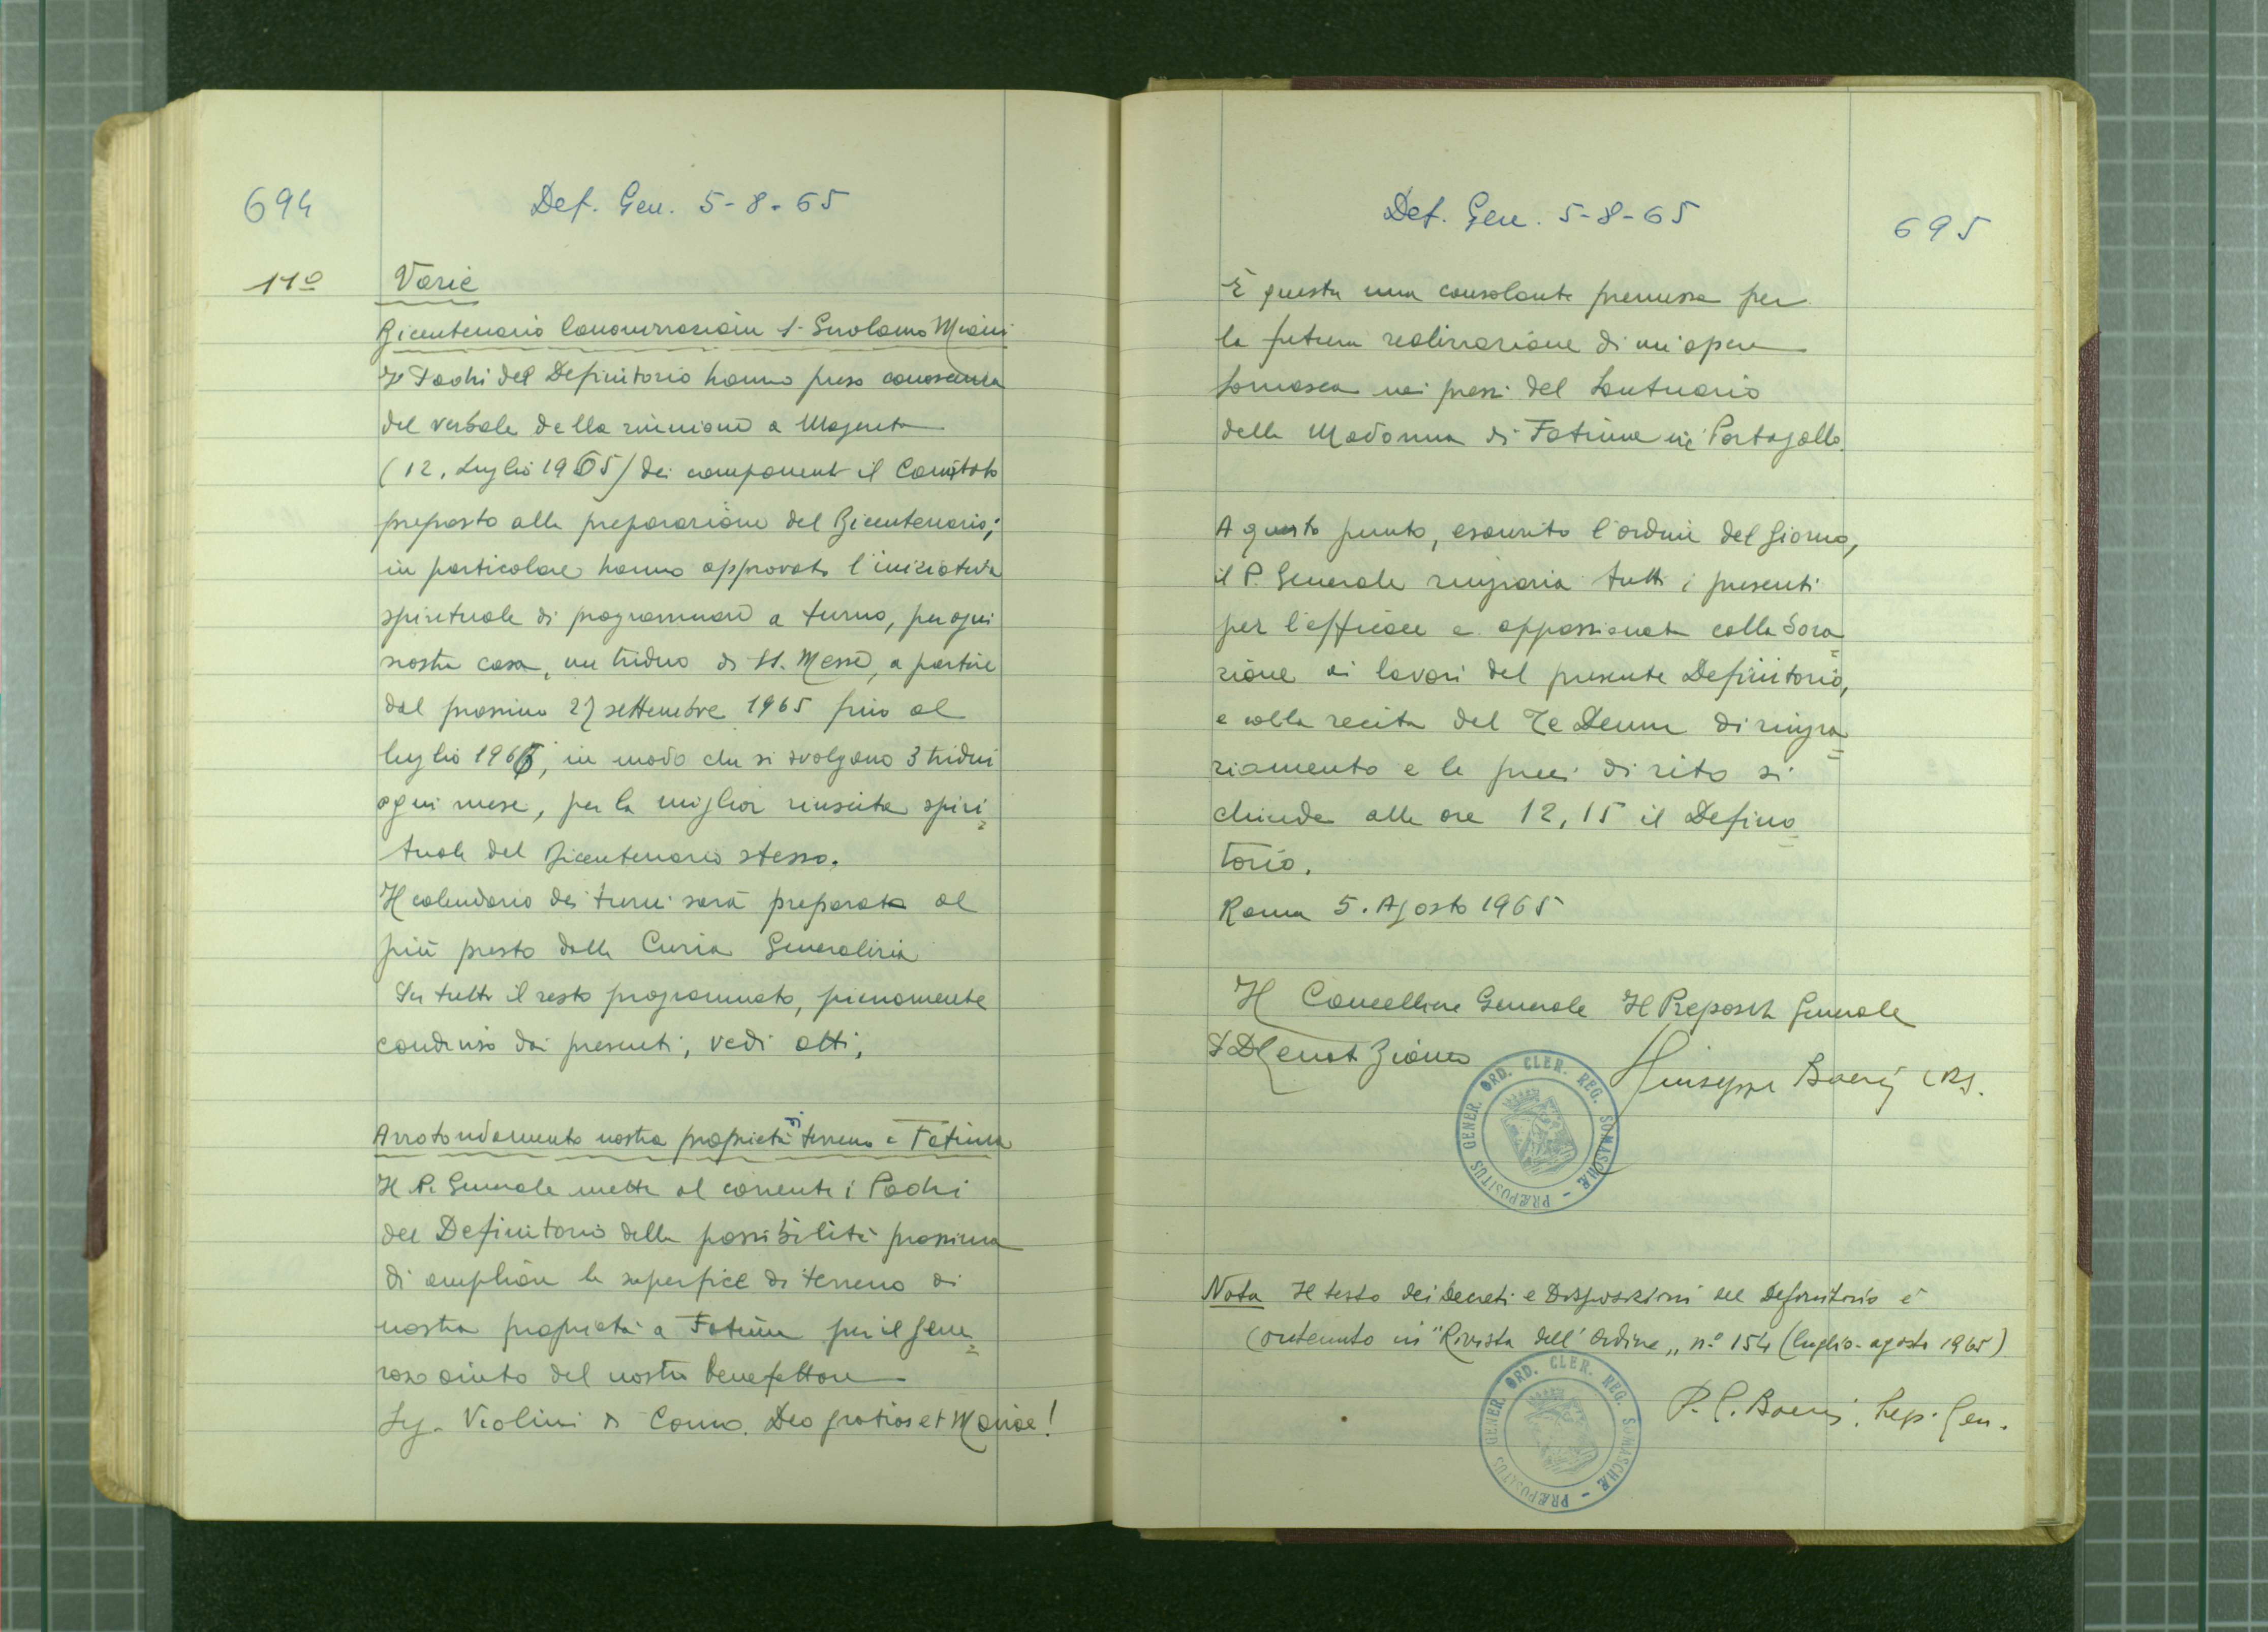 694
Def. Gen. 5-8-65
11º
Varie
Bicentenario Canonizzazione S. Girolamo Miani
I Padri del Definitorio hanno preso conoscenza
del verbale della riunione a Magenta
(12. Luglio 1965) dei componenti il Comitato
preposto alla preparazione del Bicentenario;
in particolare hanno approvato l'iniziativa
spirituale di programmare a turno, per ogni
nostra casa, un triduo di SS. Messe, a partire
dal prossimo 27 settembre 1965 fino al
luglio 1966, in modo che si svolgano 3 tridui
ogni mese, per la miglior riuscita spiri=
tuale del Bicentenario stesso.
Il calendario dei turni sarà preparato al
più presto dalla Curia Generalizia
Su tutto il resto programmato, pienamente
condiviso dai presenti, vedi atti.
Arrotondamento nostra proprietà di terreno a Fatima
Il P. Generale mette al corrente i Padri
del Definitorio della possibilità prossima
di ampliare la superfice di terreno di
nostra proprietà a Fatima per il gene=
roso aiuto del nostro benefattore
Sig. Violini di Como. Deo gratias et Mariae!
Def. Gen. 5-8-65
695
È questa una consolante premessa per
la futura realizzazione di un'opera
Somasca nei pressi del Santuario
della Madonna di Fatima in Portogallo.
A questo punto, esaurito l'ordine del giorno,
il P. Generale ringrazia tutti i presenti
per l'efficace e appassionata collabora=
zione ai lavori del presente Definitorio,
e colla recita del Te Deum di ringra=
ziamento e le preci di rito si
chiude alle ore 12,15 il Defini=
torio.
Roma 5. Agosto 1965
Il Cancelliere Generale Il Preposito Generale
Giuseppe Boeris CRS.
PRÆPOSITUS GENER. ORD. CLER. REG. SOMASCHÆ
Nota Il testo dei Decreti e Disposizioni del Definitorio è
contenuto in "Rivista dell'Ordine" n.º 154 (luglio-agosto 1965)
P. G. Boeris. Prep. Gen.
PRÆPOSITUS GENER. ORD. CLER. REG. SOMASCHÆ